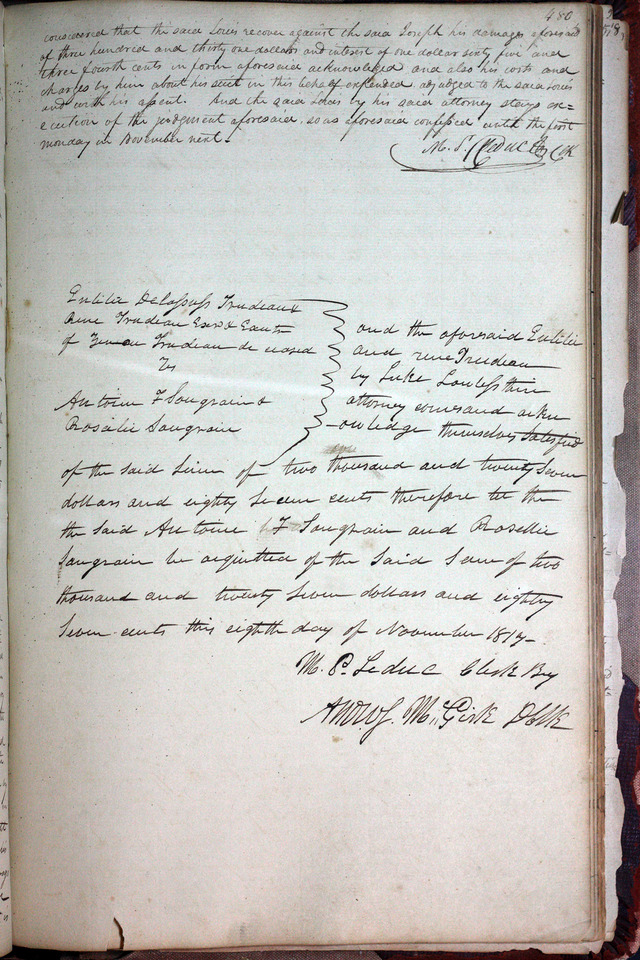 480
considered that the said Louis recover against the said Joseph his damages aforesaid
of three hundred and thirty one dollars and interest of one dollar sixty five and
three fourth cents in form aforesaid acknowledged and also his costs and
charges by him about his suit in this behalf expended, adjudged to the said Louis
and with his assent. And the said Louis by his said attorney stays ex-
ecution of the judgment aforesaid, so as aforesaid confessed until the first
monday in November next.
M. P. Leduc Clk
Eulilie Delassuss Trudeau &
Rene Trudeau Exrs & Exutx
of Zenon Trudeau deceased
vs
Antoine F Saugrain &
Rosalie Saugrain
and the aforesaid Eulilie
and rene Trudeau
by Luke Lawless their
attorney comes and ackn
owledge themselves Satisfied
of the said Sum of two thousand and twenty Seven
dollars and eighty Seven cents therefore let the
the said Antoine F Saugrain and Rosellie
Saugrain be acquitted of the Said Sum of two
thousand and twenty Seven dollars and eighty
Seven cents this eighth day of November 1817-
M. P. Leduc Clerk By
ANDW J. McGirk DClk